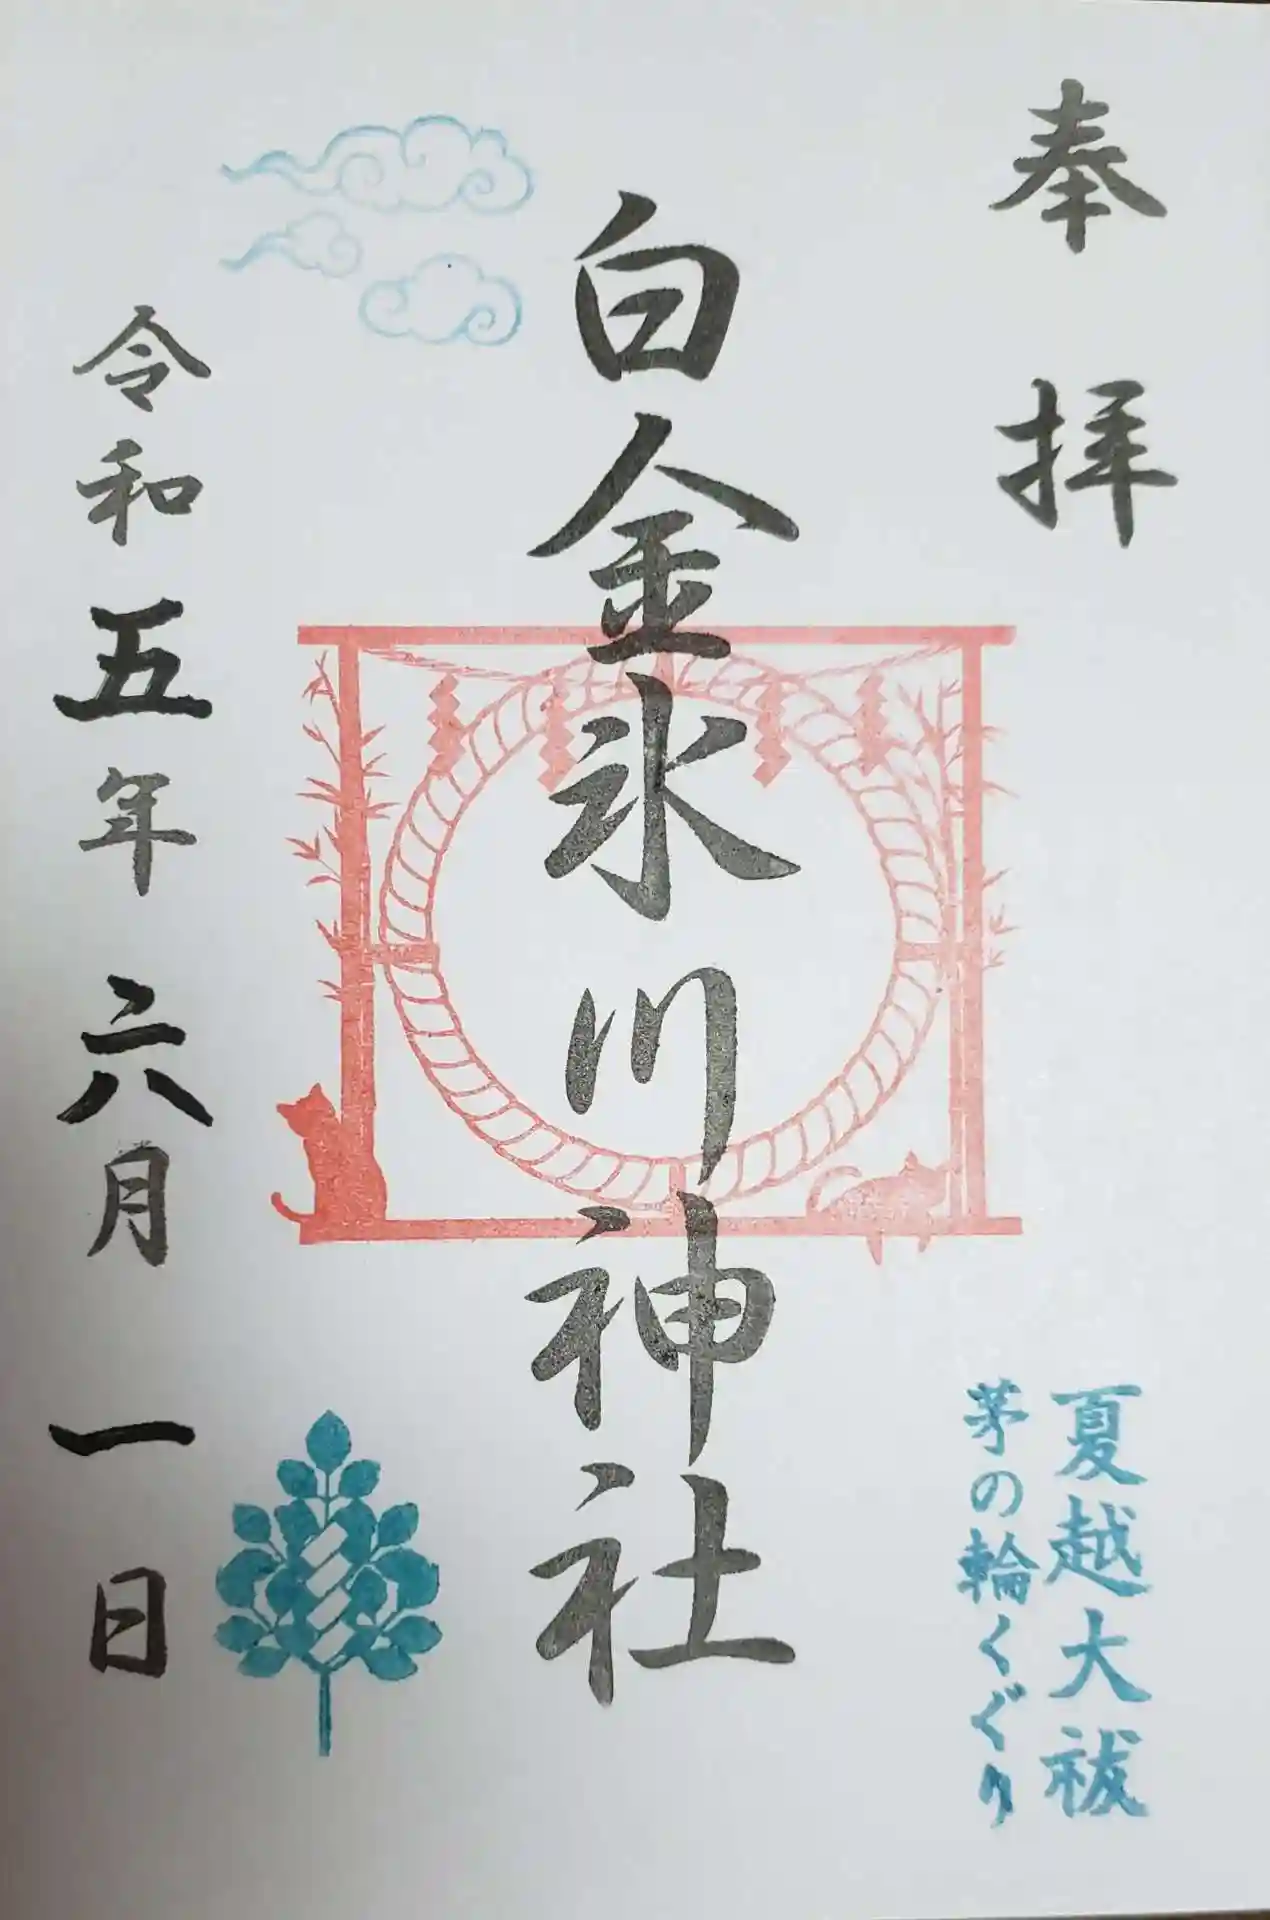 奉拝
夏越大祓
茅の輪くぐり
白金氷川神社
令和五年六月一日